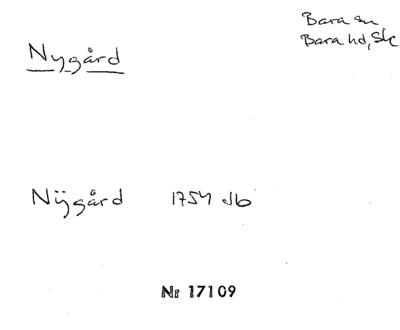 Bara sn
Bara hd, Sk
Nygård
Nÿgård 1754 db
Nr 17109